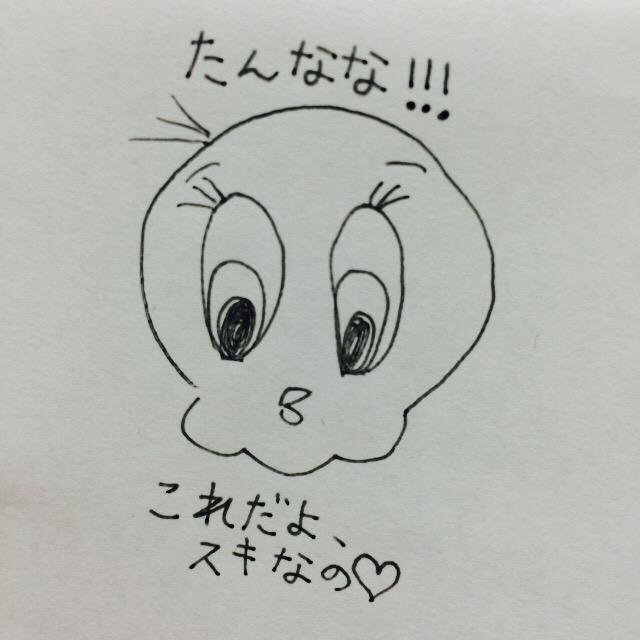 たんなな!!!
これだよ、
スキなの♡